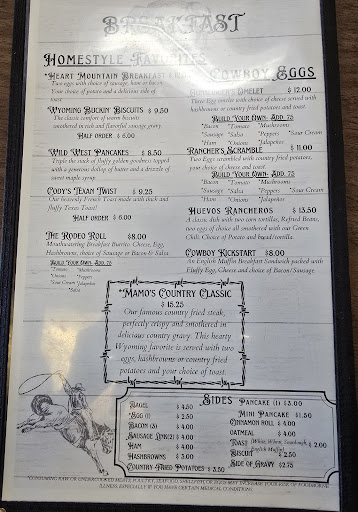 BREAKFAST
HOMESTYLE FAVORITES
*HEART MOUNTAIN BREAKFAST
Two eggs with choice of sausage, ham or bacon.
Your choice of potato and a delicious side of
toast.
*WYOMING BUCKIN' BISCUITS $ 9.50
The classic comfort of warm biscuits
smothered in rich and flavorful sausage gravy.
HALF ORDER $ 6.00
WILD WEST PANCAKES $ 8.50
Triple the stack of fluffy golden goodness topped
with a generous dollop of butter and a drizzle of
sweet maple syrup.
CODY'S TEXAN TWIST $ 9.25
Our heavenly French Toast made with thick and
fluffy Texas Toast!
HALF ORDER $ 6.00
THE RODEO ROLL $8.00
Mouthwatering Breakfast Burrito. Cheese, Egg,
Hashbrowns, choice of Sausage or Bacon & Salsa
BUILD YOUR OWN: ADD .75
*Tomato *Mushrooms
Onions *Peppers
*Sour Cream *Jalapeños
*Salsa
COWBOY EGGS
OMELET $ 12.00
Three Egg omelet with choice of cheese served with
hashbrowns or country fried potatoes and toast.
BUILD YOUR OWN: ADD .75
*Bacon *Tomato *Mushrooms
*Sausage *Salsa *Peppers *Sour Cream
*Ham *Onions *Jalapeños
RANCHER'S SCRAMBLE $ 11.00
Two Eggs scrambled with country fried potatoes,
your choice of cheese and toast.
BUILD YOUR OWN: ADD .75
*Bacon *Tomato *Mushrooms
*Sausage *Salsa *Peppers *Sour Cream
*Ham *Onions *Jalapeños
HUEVOS RANCHEROS $ 13.50
A classic dish with two corn tortillas, Refried Beans,
two eggs of choice all smothered with our Green
Chili. Choice of Potato and bread/tortilla.
COWBOY KICKSTART $8.00
An English Muffin Breakfast Sandwich packed with
Fluffy Egg, Cheese and choice of Bacon/Sausage.
*MAMO'S COUNTRY CLASSIC
$ 15.25
Our famous country fried steak,
perfectly crispy and smothered in
delicious country gravy. This hearty
Wyoming favorite is served with two
eggs, hashbrowns or country fried
potatoes and your choice of toast.
SIDES
BAGEL $ 4.50
*EGG (1) $ 2.50
BACON (3) $ 4.00
SAUSAGE LINKS(2) $ 4.00
HAM $ 4.00
HASHBROWNS $ 3.00
COUNTRY FRIED POTATOES $ 3.50
PANCAKE (1) $3.00
MINI PANCAKE $1.50
CINNAMON ROLL $ 4.00
OATMEAL $ 4.00
TOAST (White, Wheat, Sourdough, English Muffin) $ 2.00
BISCUIT $ 2.50
SIDE OF GRAVY $2.75
*CONSUMING RAW OR UNDERCOOKED MEATS, POULTRY, SEAFOOD, SHELLFISH, OR EGGS MAY INCREASE YOUR RISK OF FOODBORNE
ILLNESS, ESPECIALLY IF YOU HAVE CERTAIN MEDICAL CONDITIONS.